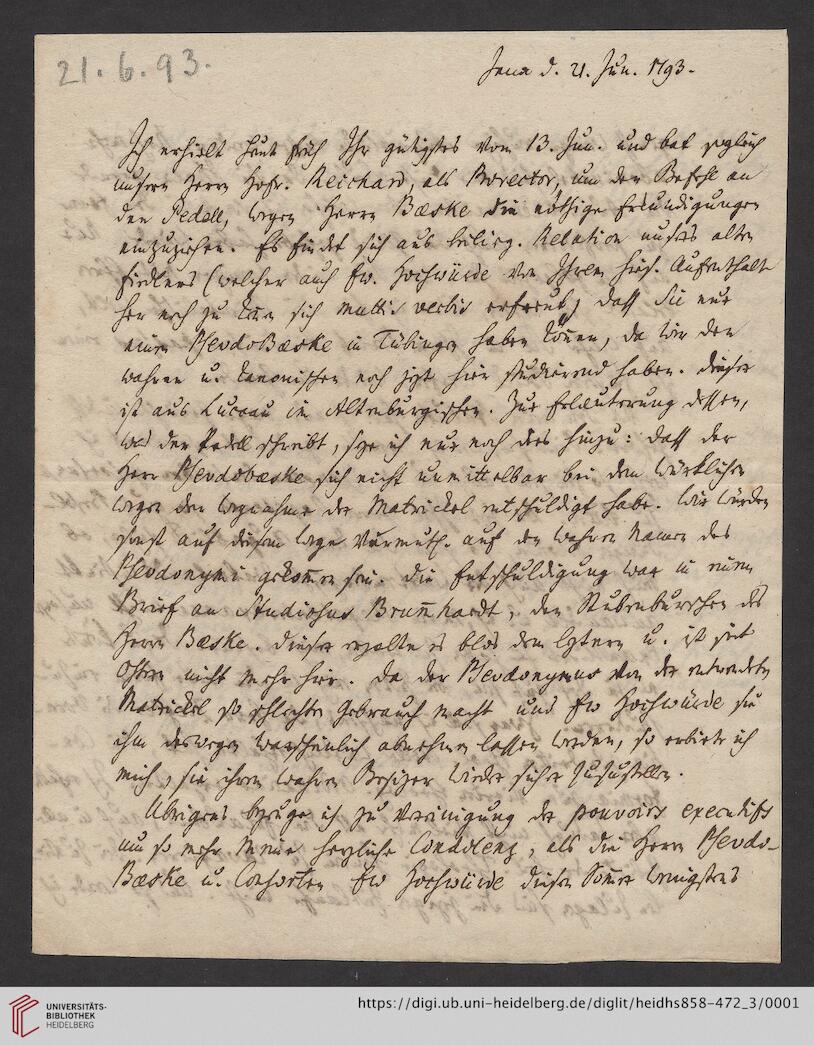 21.6.93.
Jena d. 21. Jun. 1793.
Ich erhielt heut früh Ihr gütigstes vom 13. Jun. und bat sogleich
unsern Herrn Hofr. Reichard, als Prorector, um den Befehl an
den Pedell, wegen Herrn Bæske die nöthige Erkundigungen
einzuziehen. Es findet sich aus beilieg. Relation unsers alten
Fiedlers (welcher auch Ew. Hochwürde von Ihrem hies. Aufenthalt
her noch zu sich mult. verbis erfreut) daß Sie nur
einen PsevdoBæske in Tübingen haben können, da wir den
wahren u. kanonischen noch jezt hier studierend haben. Dieser
ist aus Luccau im Altenburgischen. Zur Erläuterung dessen,
was der Pedell schreibt, seze ich nur noch dies hinzu: daß der
Herr Psevdobæske sich nicht unmittelbar bei dem würklichen
wegen der wegnahme der Matrickel entschuldigt habe. Wir würden
sonst auf diesem wege Vermuth. auf den wahren Namen des
Psevdonymi gekommen sein. Die Entschuldigung war in einem
Brief an Studiosus Brum̅hardt, den Stubenburschen des
Herrn Bæske. Dieser erzälte es blos dem leztern u. ist seit
Ostern nicht mehr hier. Da der Psevdonymus von der entwendeten
Matrickel so schlechten Gebrauch macht und Ew Hochwürde sie
ihm deswegen warscheinlich abnehmen lassen werden, so erbiete ich
mich, sie ihrem wahren Besizer wieder sicher zuzustellen.
Übrigens bezeuge ich zu Vereinigung der pouvoirs executifs
um so mehr meine herzliche Condolenz, als die Herrn Psevdo-
Bæske u. Consorten Ew Hochwürde diesen Som̅er wenigstens
UNIVERSITÄTS-
BIBLIOTHEK
HEIDELBERG
https://digi.ub.uni-heidelberg.de/diglit/heidhs858-472_3/0001